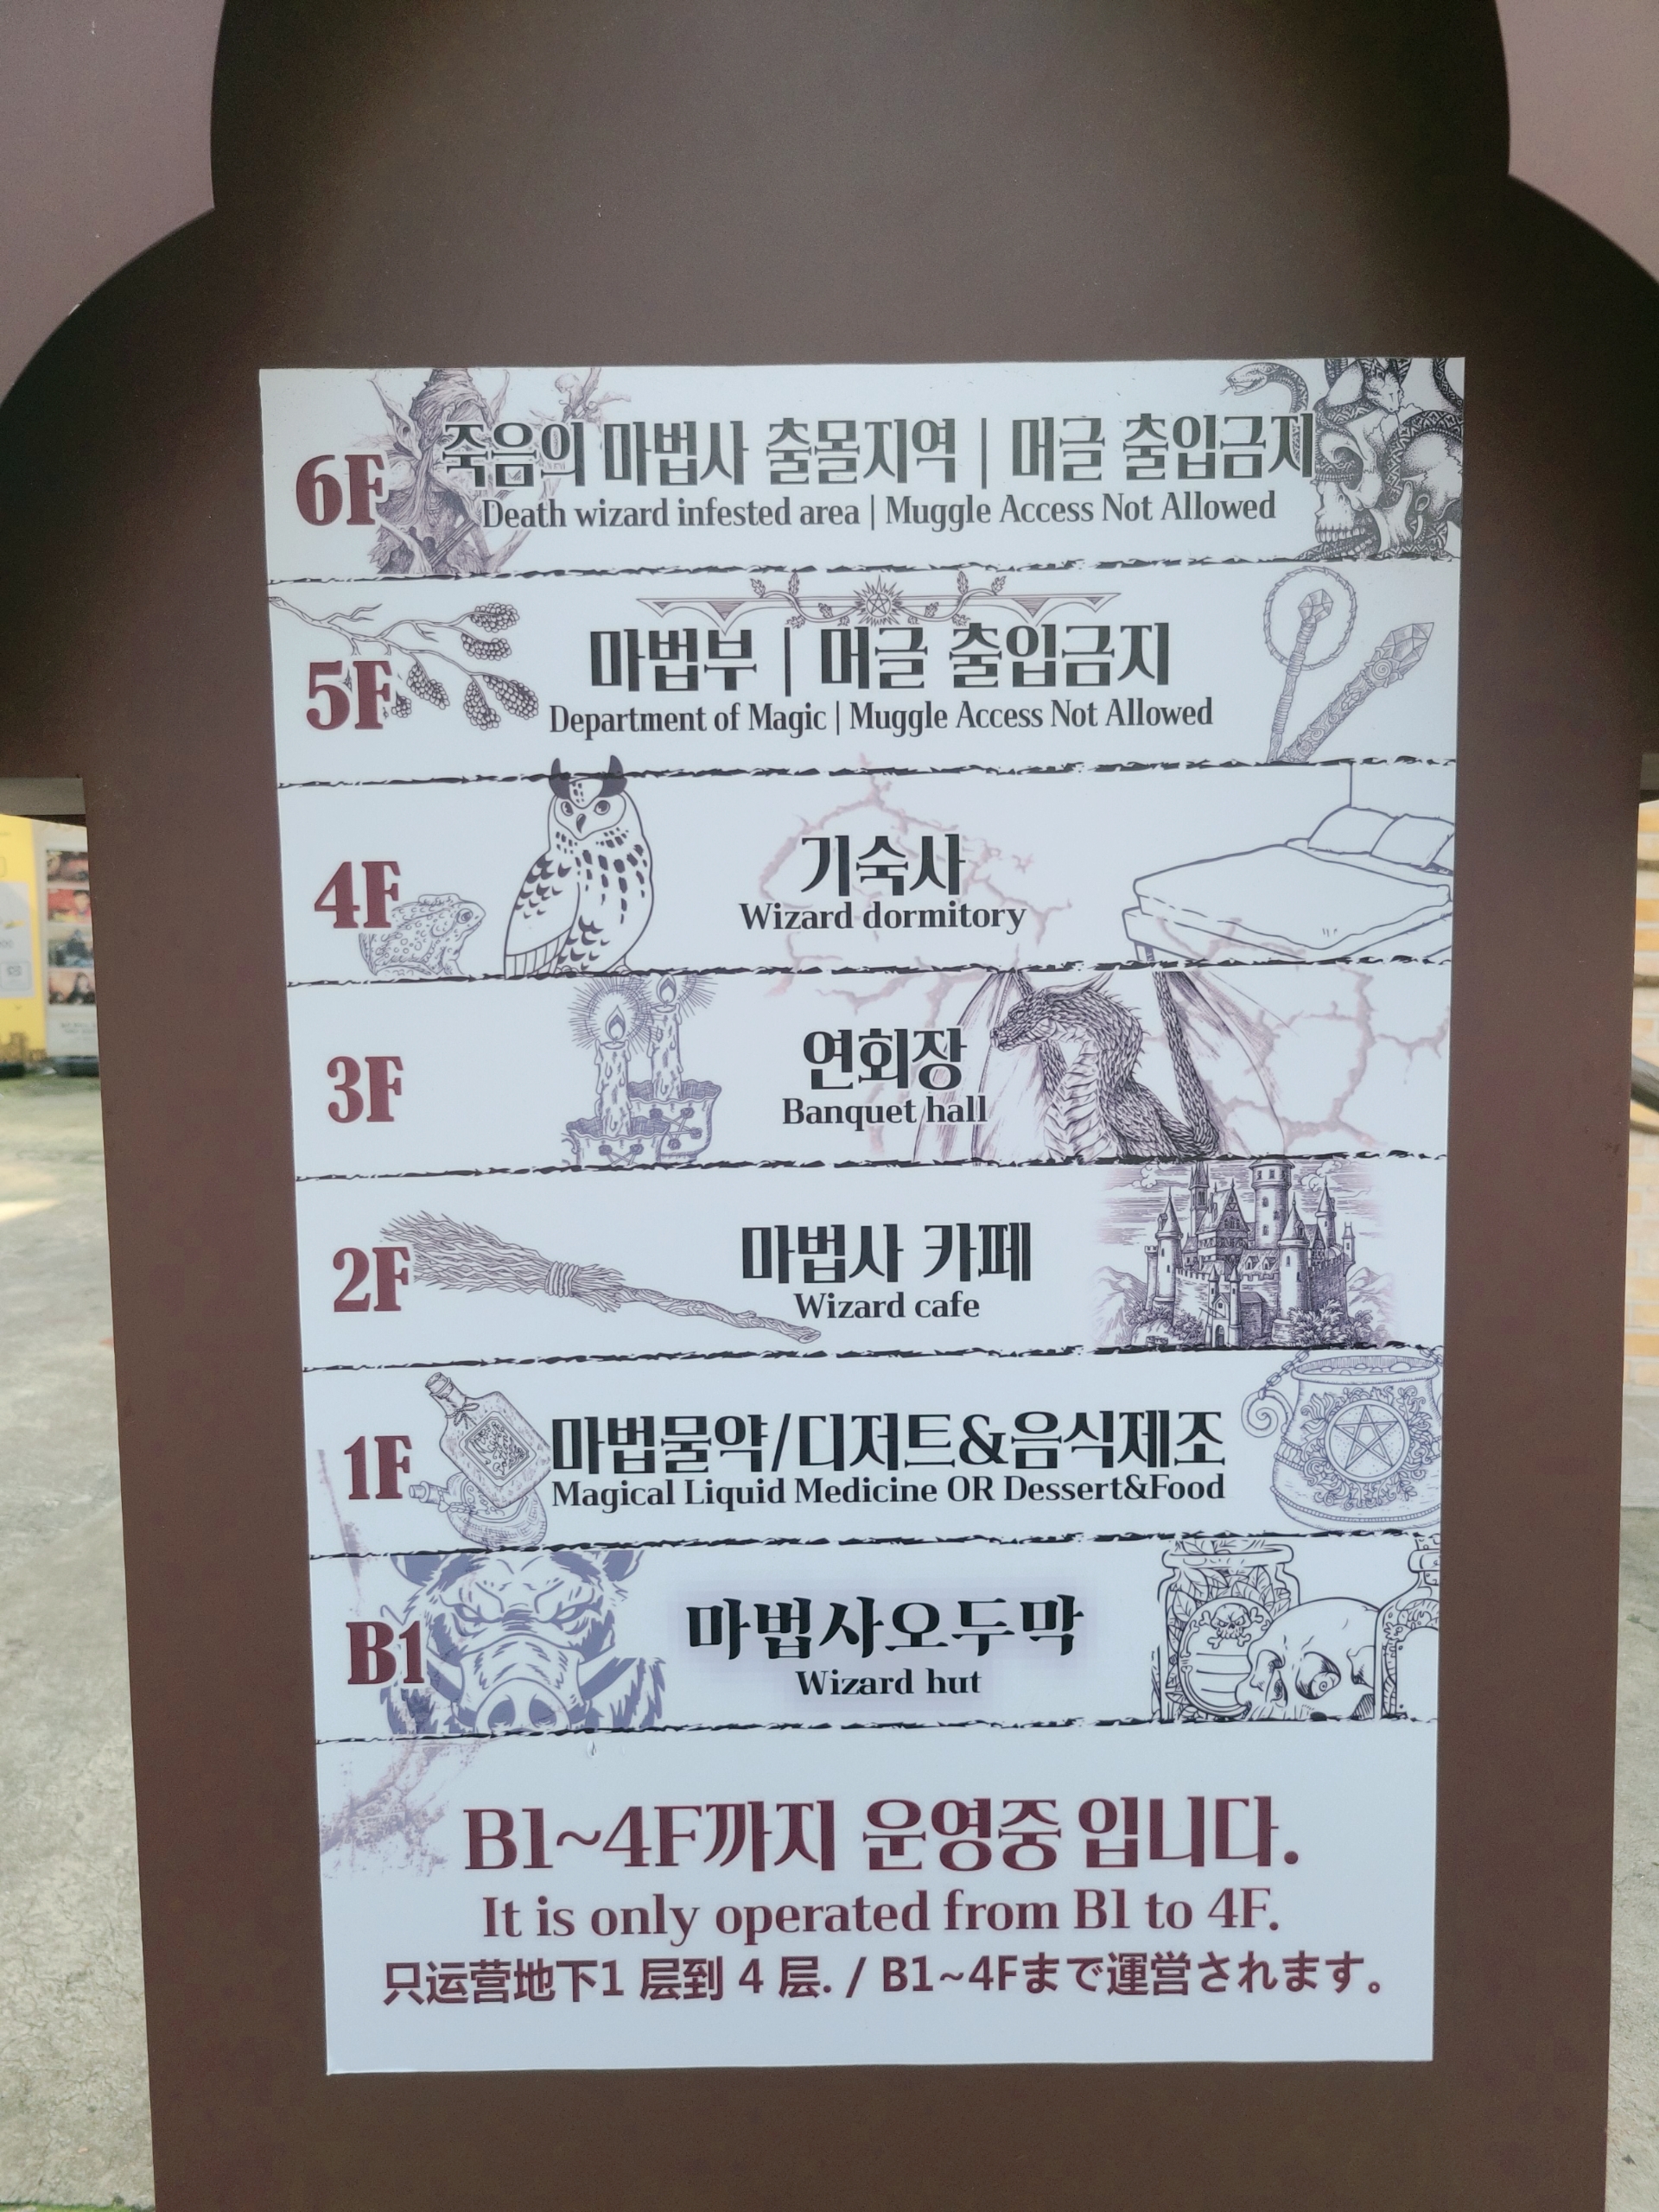 6F
죽음의 마법사 출몰지역 | 머글 출입금지
Death wizard infested area | Muggle Access Not Allowed
5F
마법부 | 머글 출입금지
Department of Magic | Muggle Access Not Allowed
4F
기숙사
Wizard dormitory
3F
연회장
Banquet hall
2F
마법사 카페
Wizard cafe
1F
마법물약/디저트&음식제조
Magical Liquid Medicine OR Dessert&Food
B1
마법사오두막
Wizard hut
B1~4F까지 운영중 입니다.
It is only operated from B1 to 4F.
只运营地下1 层到 4 层. / B1~4Fまで運営されます。